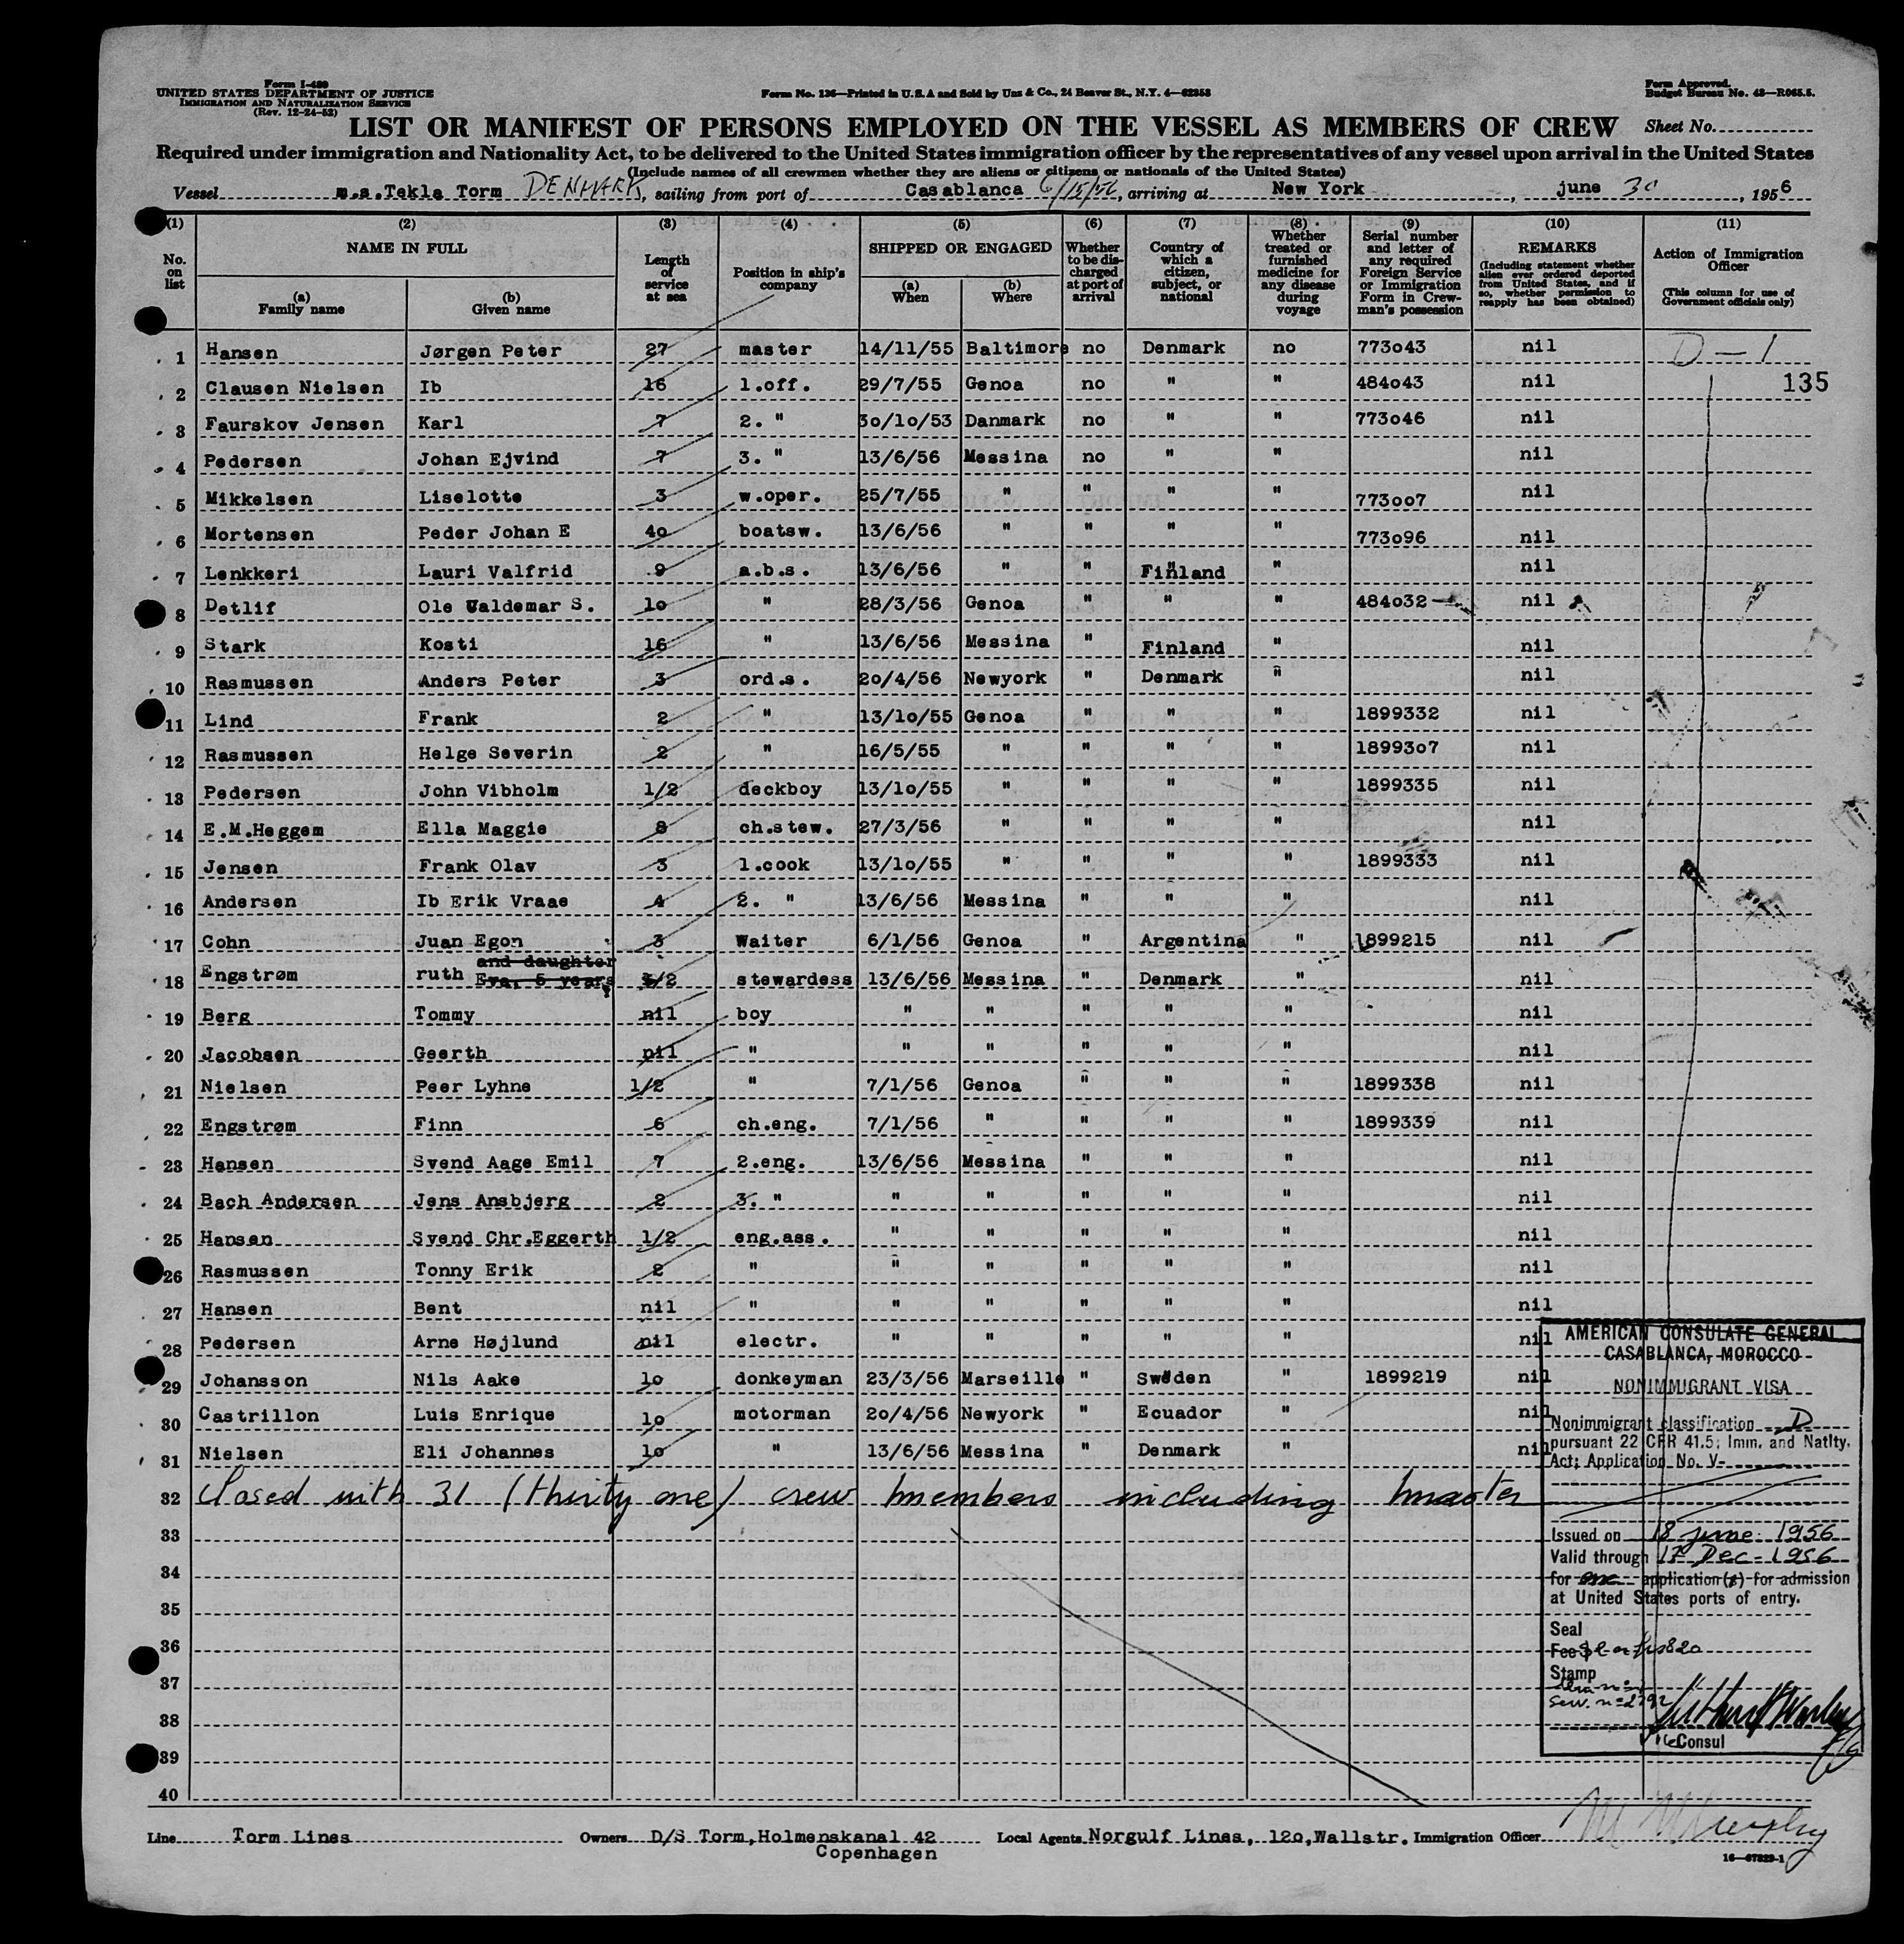 Form I-489
UNITED STATES DEPARTMENT OF JUSTICE
IMMIGRATION AND NATURALIZATION SERVICE
(Rev. 12-24-52)
Form No. 136—Printed in U.S.A and Sold by Unz & Co., 24 Beaver St., N.Y. 4—62353
Form Approved.
Budget Bureau No. 43—R065.5.
LIST OR MANIFEST OF PERSONS EMPLOYED ON THE VESSEL AS MEMBERS OF CREW Sheet No.
Required under immigration and Nationality Act, to be delivered to the United States immigration officer by the representatives of any vessel upon arrival in the United States
(Include names of all crewmen whether they are aliens or citizens or nationals of the United States)
Vessel m.s.Tekla Torm DENMARK, sailing from port of Casablanca 6/15/56, arriving at New York, june 30, 1956
(1) No. on list
(2) NAME IN FULL
(a) Family name (b) Given name
(3) Length of service at sea
(4) Position in ship's company
(5) SHIPPED OR ENGAGED
(a) When (b) Where
(6) Whether to be discharged at port of arrival
(7) Country of which a citizen, subject, or national
(8) Whether treated or furnished medicine for any disease during voyage
(9) Serial number and letter of any required Foreign Service or Immigration Form in Crewman's possession
(10) REMARKS
(Including statement whether alien ever ordered deported from United States, and if so, whether permission to reapply has been obtained)
(11) Action of Immigration Officer
(This column for use of Government officials only)
1 Hansen Jørgen Peter 27 master 14/11/55 Baltimore no Denmark no 773o43 nil D-1
2 Clausen Nielsen Ib 16 1.off. 29/7/55 Genoa no " " 484o43 nil 135
3 Faurskov Jensen Karl 7 2. " 3o/1o/53 Danmark no " " 773o46 nil
4 Pedersen Johan Ejvind 7 3. " 13/6/56 Messina no " " nil
5 Mikkelsen Liselotte 3 w.oper. 25/7/55 " " " " 773oo7 nil
6 Mortensen Peder Johan E 4o boatsw. 13/6/56 " " " " 773o96 nil
7 Lenkkeri Lauri Valfrid 9 a.b.s. 13/6/56 " " Finland " nil
8 Detlif Ole Valdemar S. 1o " 28/3/56 Genoa " " " 484o32 nil
9 Stark Kosti 16 " 13/6/56 Messina " Finland " nil
10 Rasmussen Anders Peter 3 ord.s. 2o/4/56 Newyork " Denmark " nil
11 Lind Frank 2 " 13/1o/55 Genoa " " " 1899332 nil
12 Rasmussen Helge Severin 2 " 16/5/55 " " " " 18993o7 nil
13 Pedersen John Vibholm 1/2 deckboy 13/1o/55 " " " " 1899335 nil
14 E.M.Heggem Ella Maggie 8 ch.stew. 27/3/56 " " " " nil
15 Jensen Frank Olav 3 1.cook 13/1o/55 " " " " 1899333 nil
16 Andersen Ib Erik Vraae 4 2. " 13/6/56 Messina " " " nil
17 Cohn Juan Egon 3 Waiter 6/1/56 Genoa " Argentina " 1899215 nil
and daughter
18 Engstrøm ruth Eva, 5 years 1/2 stewardess 13/6/56 Messina " Denmark " nil
19 Berg Tommy nil boy " " " " " nil
20 Jacobsen Geerth nil " " " " " " nil
21 Nielsen Peer Lyhne 1/2 " 7/1/56 Genoa " " " 1899338 nil
22 Engstrøm Finn 6 ch.eng. 7/1/56 " " " " 1899339 nil
23 Hansen Svend Aage Emil 7 2.eng. 13/6/56 Messina " " " nil
24 Bach Andersen Jens Ansbjerg 2 3. " " " " " " nil
25 Hansen Svend Chr.Eggerth 1/2 eng.ass. " " " " " nil
26 Rasmussen Tonny Erik 2 " " " " " " nil
27 Hansen Bent nil " " " " " " nil
28 Pedersen Arne Højlund nil electr. " " " " " nil
29 Johansson Nils Aake 1o donkeyman 23/3/56 Marseille " Sweden " 1899219 nil
30 Castrillon Luis Enrique 1o motorman 2o/4/56 Newyork " Ecuador " nil
31 Nielsen Eli Johannes 1o " 13/6/56 Messina " Denmark " nil
32 Closed with 31 (thirty one) crew members including master
33
34
35
36
37
38
39
40
AMERICAN CONSULATE GENERAL
CASABLANCA, MOROCCO
NONIMMIGRANT VISA
Nonimmigrant classification D
pursuant 22 CFR 41.5; Imm. and Natlty.
Act; Application No. V-
Issued on 18 june 1956
Valid through 17 Dec-1956
for one application(s) for admission
at United States ports of entry.
Seal
Fee
Stamp
Serv. n=2792
Vice Consul
Line Torm Lines Owners D/S Torm,Holmenskanal 42 Local Agents Norgulf Lines, 12o,Wallstr. Immigration Officer M Murphy
Copenhagen
16—67829-1